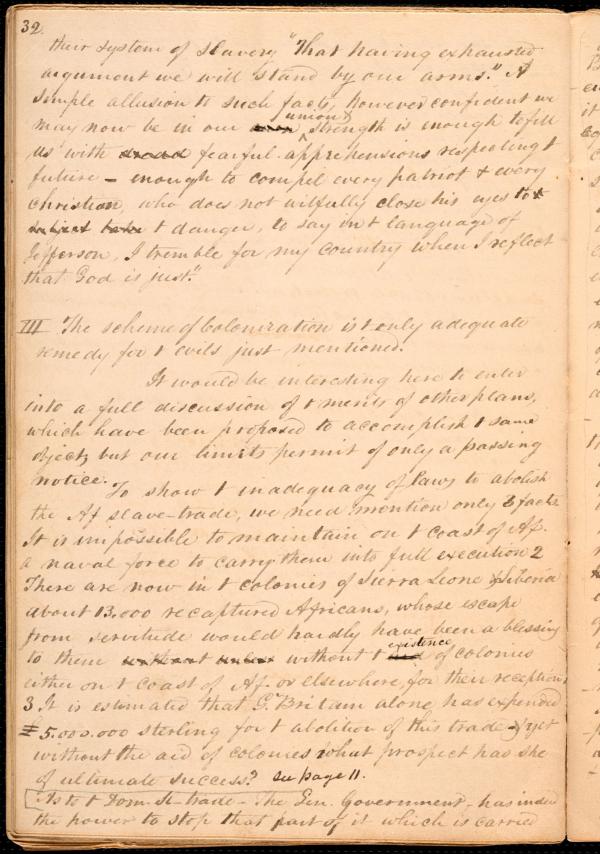 32
their system of slavery "That having exhausted
argument we will stand by our arms." A
simple allusion to such facts, however confident we
may now be in our union & strength is enough to fill
us with dread fearful apprehensions respecting t
future - enough to compel every patriot & every
Christian, who does not wilfully close his eyes to t
t danger, to say in t language of
Jefferson, I tremble for my country when I reflect
that God is just."
III The scheme of Colonization is t only adequate
remedy for t evils just mentioned.
It would be interesting here to enter
into a full discussion of t merits of other plans,
which have been proposed to accomplish t same
object, but our limits permit of only a passing
notice.
To show t inadequacy of laws to abolish
the Af slave-trade, we need mention only 3 facts
It is impossible to maintain on t coast of Af.
a naval force to carry them into full execution 2
There are now in t colonies of Sierra Leone & Liberia
about 13,000 recaptured Africans, whose escape
from servitude would hardly have been a blessing
to them without unless without t existence of colonies
either on t coast of Af. or elsewhere, for their reception.
3 It is estimated that G. Britain alone, has expended
£5.000.000 sterling for t abolition of this trade & yet
without the aid of colonies what prospect has she
of ultimate success? see page 11.
As to t Dom. sl-trade - The Gen. Government - has indeed
the power to stop that part of it which is carried